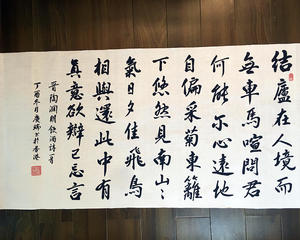 結廬在人境而
無車馬喧問君
何能尔心遠地
自偏采菊東籬
下悠然見南山〻
氣日夕佳飛鳥
相與還此中有
真意欲辯已忘言
晉陶淵明飲酒詩一首
丁酉冬月廣書於香港